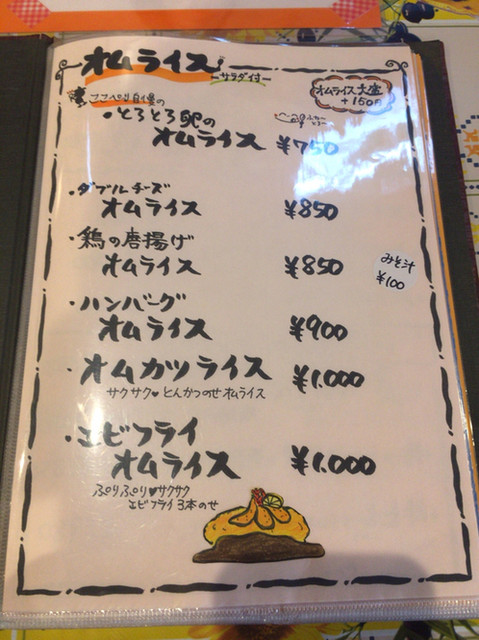 オムライス
サラダ付
オムライス大盛
+150円
ここぺりの自慢の
・とろとろ卵の
オムライス ¥750
・ダブルチーズ
オムライス ¥850
・鶏の唐揚げ
オムライス ¥850
みそ汁
¥100
・ハンバーグ
オムライス ¥900
・オムカツライス ¥1.000
サクサク♥とんかつのせオムライス
・エビフライ
オムライス ¥1.000
ぷりぷり♥サクサク
エビフライ3本のせ